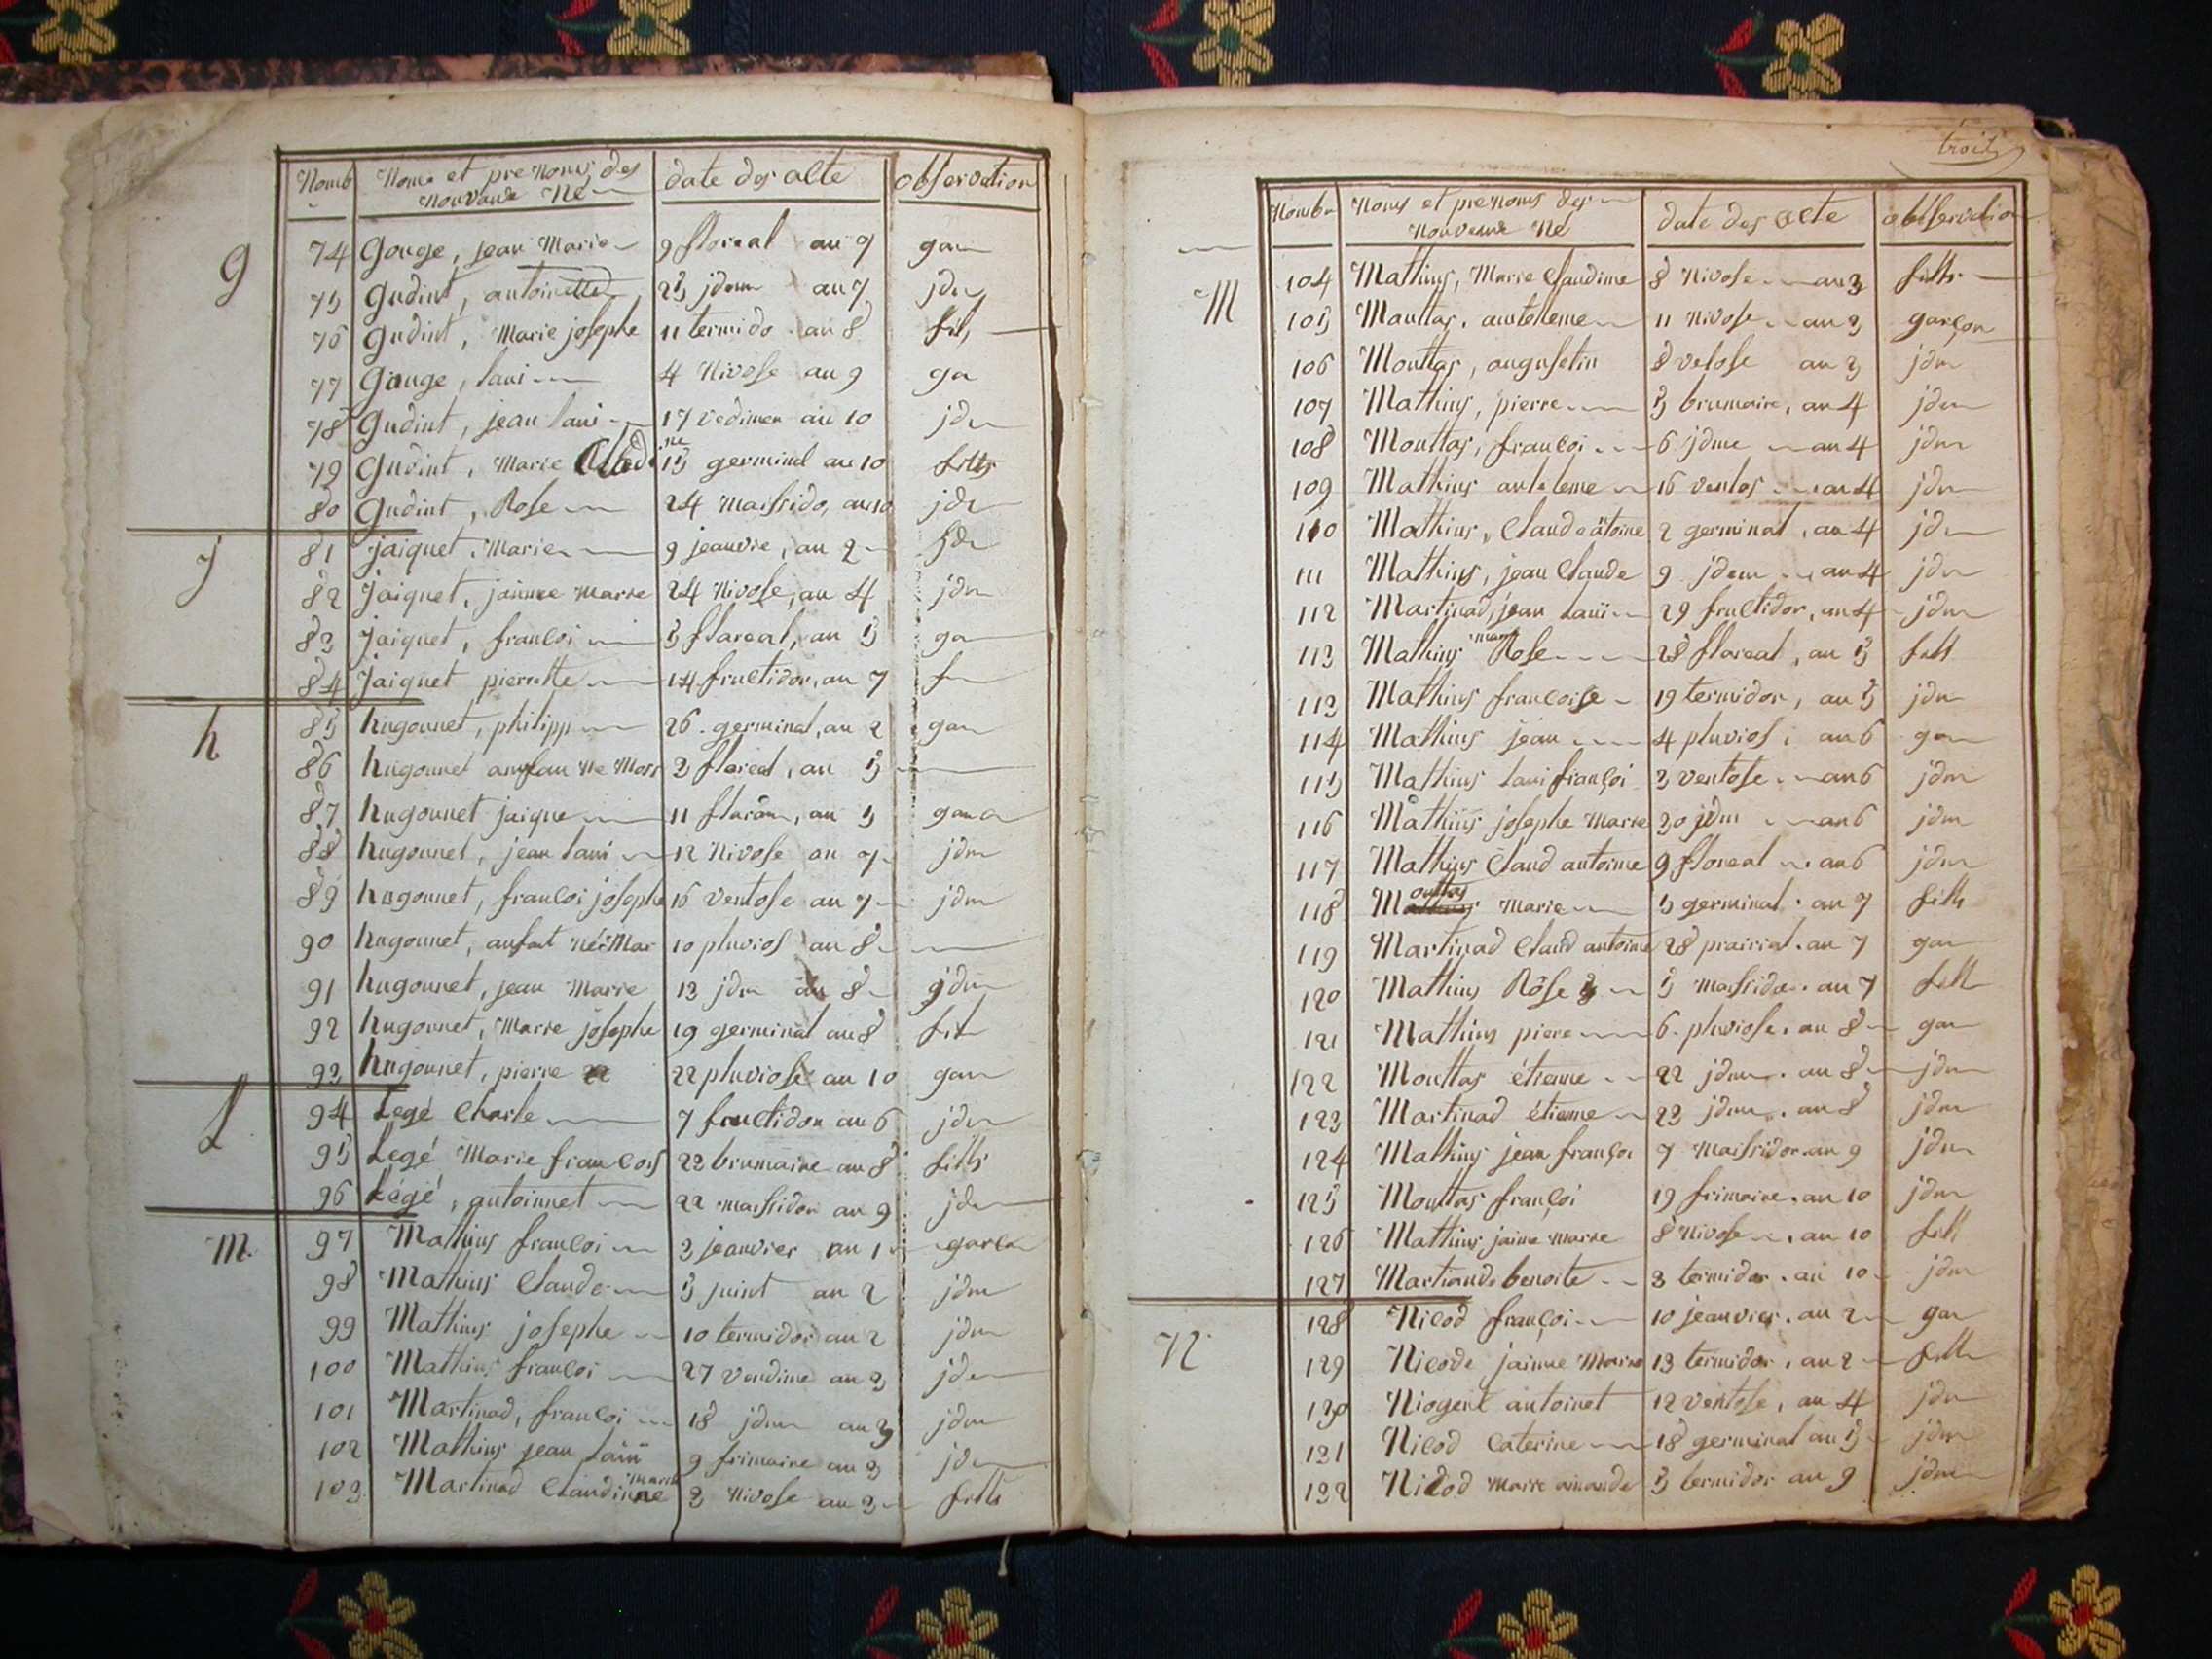 Nomb Noms et prenoms des nouvaux Né date des acte observation
g
74 gouge, jean Marie 9 floreal an 7 gar
75 gudint, antoinette 25 jdem an 7 jdm
76 gudint, Marie josephe 11 termido an 8 fils
77 gouge, laui 4 Nivose an 9 ga
78 gudint, jean laui 17 vedimen an 10 jdm
79 gudint, Marie 15 germinal an 10 fills
80 gudint, Rose 24 Maissido, an 10 jdm
j
81 jaiquet, Marie 9 jeanvie, an 2 jdm
82 jaiquet, jainne Marie 24 Nivose, an 4 jdm
83 jaiquet, francoi 5 flareal, an 5 ga
84 jaiquet pierrette 14 fructidor, an 7 f
h
85 hugonnet, philipp 26 germinal, an 2 gar
86 hugonnet anfan Ne Mors 3 floreal, an 5
87 hugonnet jaique 11 , an 5 garco
88 hugonnet, jean laui 12 Nivose an 7 jdm
89 hugonnet, francoi josephe 16 ventose an 7 jdm
90 hugonnet, anfant né Mor 10 pluvios an 8
91 hugonnet, jean Marie 13 jdm an 8 jdm
92 hugonnet, Marie josephe 19 germinal an 8 fil
93 hugonnet, pierre 22 pluviose an 10 gar
L
94 Legé Charle 7 fructidor an 6 jdm
95 Legé Marie francois 22 brumaire an 8 fills
96 Légé, antoinnet 22 maissidor an 9 jdm
M
97 Mathius francoi 3 jeanvier an 1 garco
98 Mathius Claude 5 juint an 2 jdm
99 Mathius josephe 10 termidor an 2 jdm
100 Mathius francoi 27 vendime an 3 jdm
101 Martinad, francoi 18 jdm an 3 jdm
102 Mathius jean laui 9 frimaire an 3 jdm
103 Martinad Claudinne Marie 3 Nivose an 3 fills
trois
Nomb Noms et prenoms des nouveaux Né date des acte obsservation
M
104 Mathius, Marie Claudime 8 Nivose an 3 fills
105 Mauttas, anteleme 11 Nivose an 3 garçon
106 Mouttas, angusetin 8 vetose an 3 jdm
107 Mathius, pierre 5 brumaire, an 4 jdm
108 Mouttas, francoi 6 jdme an 4 jdm
109 Mathius anteleme 16 ventos an 4 jdm
110 Mathius, Claude atoine 2 germinal, an 4 jdm
111 Mathius, jean Claude 9 jdem an 4 jdm
112 Martinad, jean Laui 29 fructidor, an 4 jdm
113 Mathius Marie Rose 28 flareal, an 5 fill
113 Mathius francoise 19 termidor, an 5 jdm
114 Mathius jean 4 pluvios, an 6 gar
115 Mathius laui françoi 3 ventose an 6 jdm
116 Mathius josephe Marie 30 jdm an 6 jdm
117 Mathius Claud antoine 9 floreal an 6 jdm
118 Mouttas Marie 5 germinal an 7 fills
119 Martinad Claud antoine 28 prairial an 7 gar
120 Mathius Rose 5 Maissidor an 7 fill
121 Mathius piere 6 pluviose an 8 gar
122 Mouttas étienne 22 jdm an 8 jdm
123 Martinad étienne 23 jdm an 8 jdm
124 Mathius jean françoi 7 Maissidor an 9 jdm
125 Mouttas françoi 19 frimaire an 10 jdm
126 Mathius jaime Marie 8 Nivose, an 10 fill
127 Martinad benoite 3 termidor an 10 jdm
N
128 Nicod françoi 10 jeanvier an 2 gar
129 Nicode jaimne Marie 13 termidor, an 2 fill
130 Niogent antoinet 12 ventose, an 4 jdm
131 Nicod Caterine 18 germinal an 5 jdm
132 Nicod Marie amande 5 termidor an 9 jdm